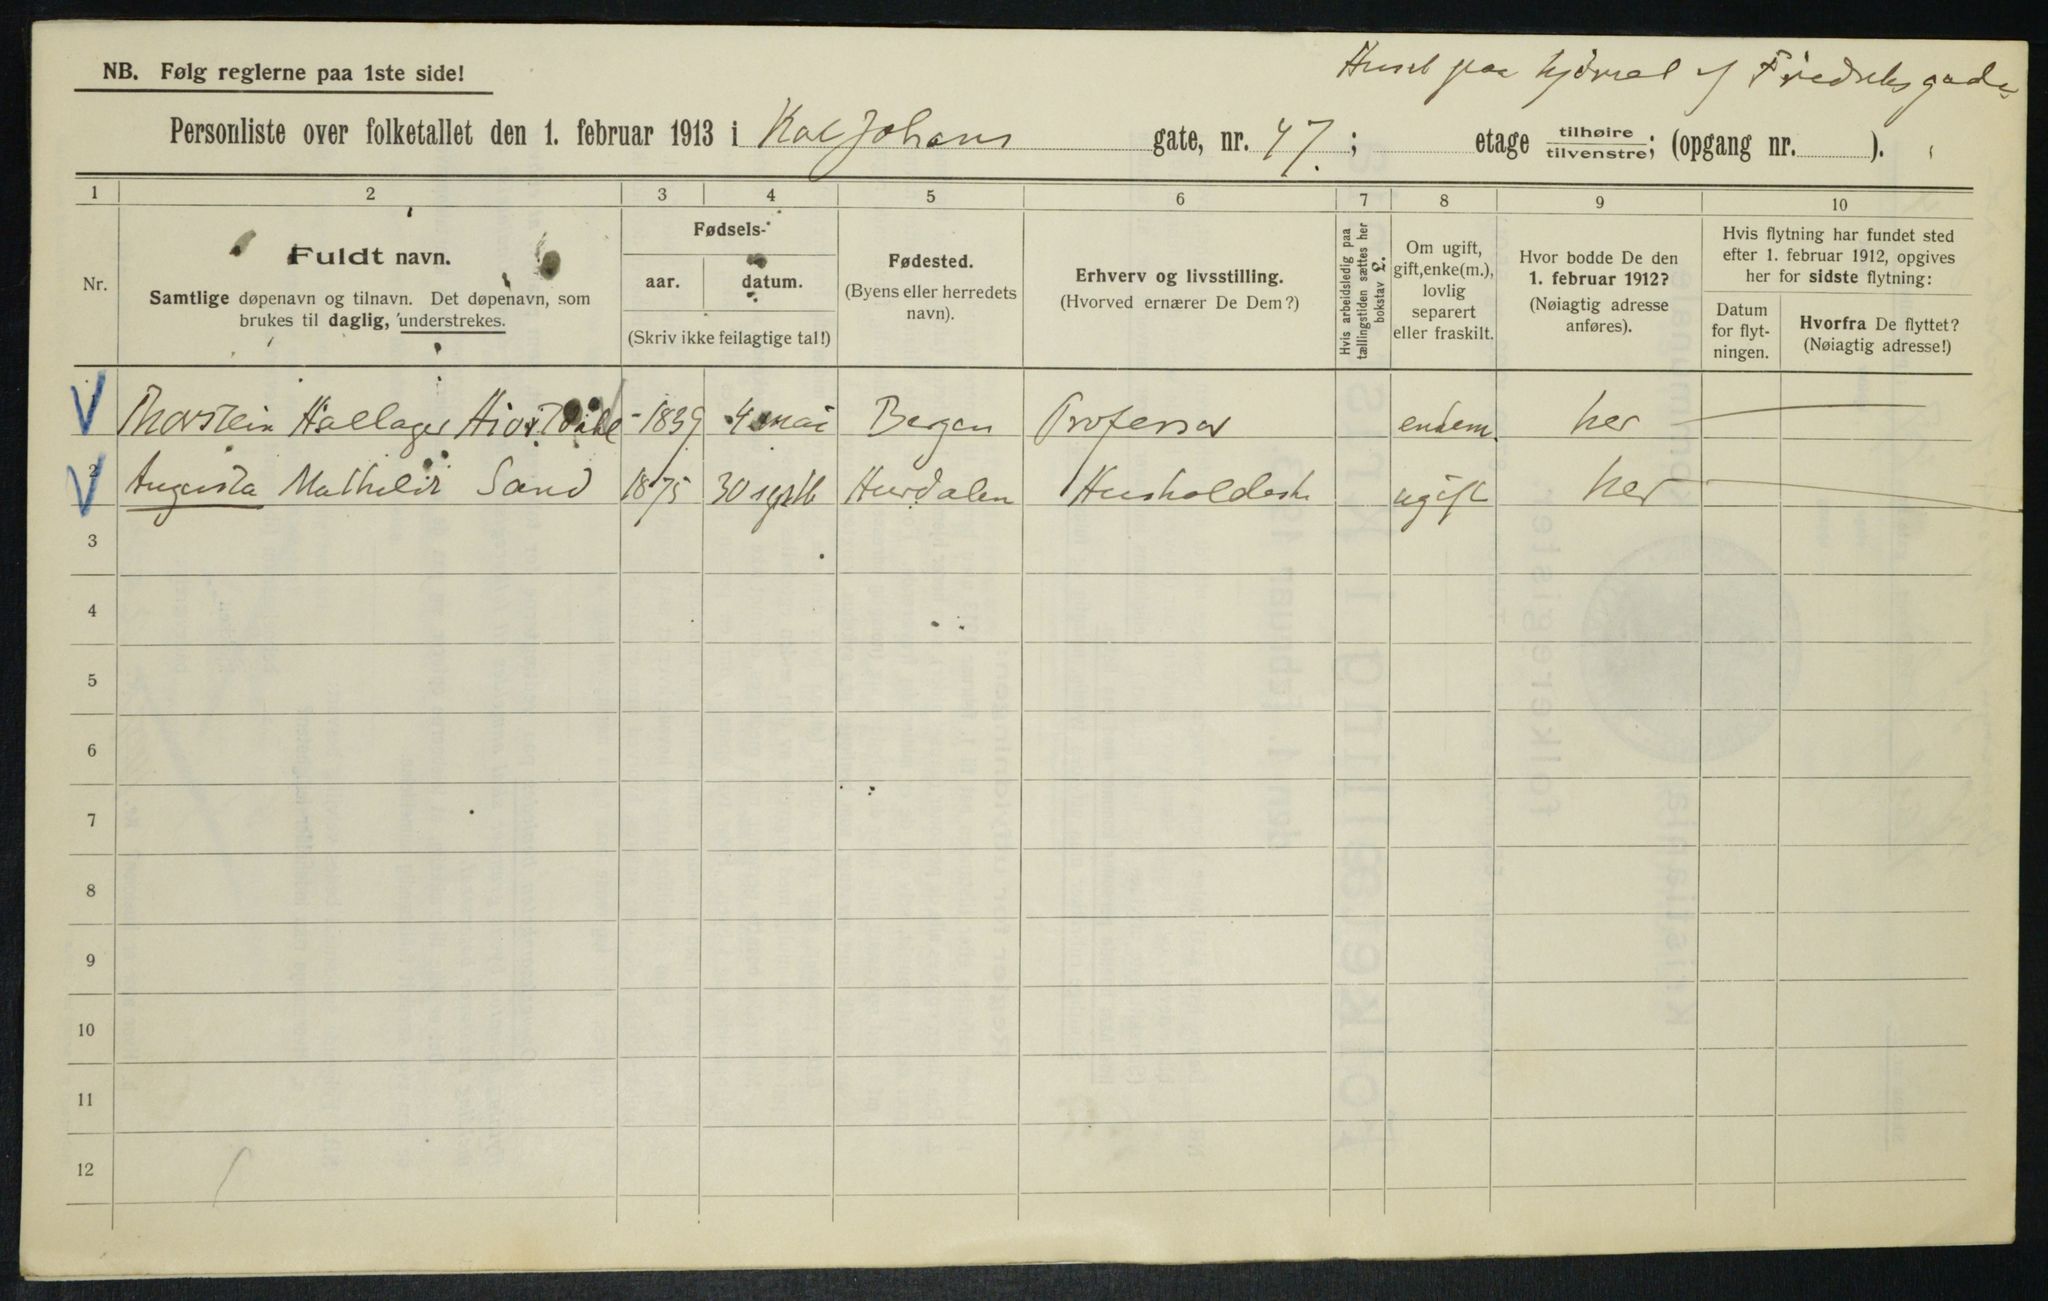 Huset paa hjørnet af Fredriksgade
NB. Følg reglerne paa 1ste side!
Personliste over folketallet den 1. februar 1913 i Kal Johans gate, nr. 47.; etage tilhøire tilvenstre; (opgang nr. ).
1 2 3 4 5 6 7 8 9 10
Nr.
Fuldt navn.
Samtlige døpenavn og tilnavn. Det døpenavn, som
brukes til daglig, understrekes.
Fødsels-
aar. datum.
(Skriv ikke feilagtige tal!)
Fødested.
(Byens eller herredets
navn).
Erhverv og livsstilling.
(Hvorved ernærer De Dem?)
Hvis arbeidsledig paa
tællingstiden sættes her
bokstav L.
Om ugift,
gift, enke(m.),
lovlig
separert
eller fraskilt.
Hvor bodde De den
1. februar 1912?
(Nøiagtig adresse
anføres).
Hvis flytning har fundet sted
efter 1. februar 1912, opgives
her for sidste flytning:
Datum
for flyt-
ningen.
Hvorfra De flyttet?
(Nøiagtig adresse!)
Thorstein Hallager Hiortdahl 1839 4 mai Bergen Professor enkem. her
2 Augusta Mathilde Sand 1875 30 septb Hurdalen Husholderske ugift her
3
4
5
6
7
8
9
10
11
12